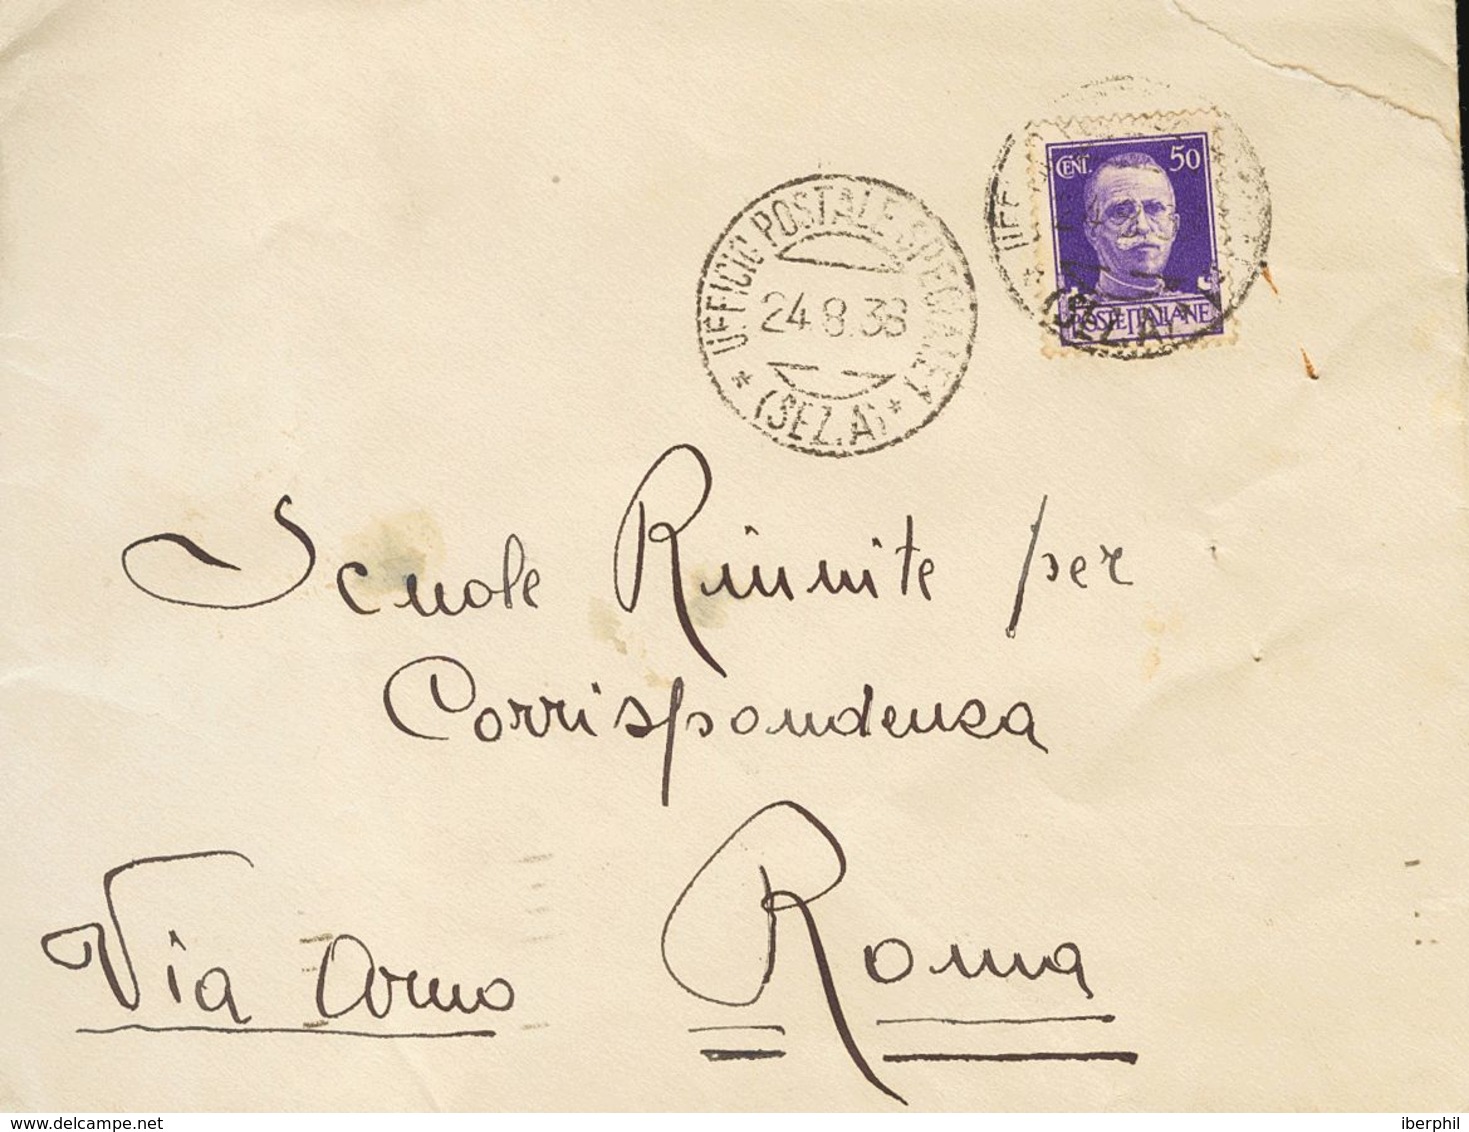 CENT. 50
POSTE ITALIANE
UFFICIO POSTALE SPECIALE 1
24.8.38
(SEZ.A)
Scuole Riunite per
Corrispondenza
Via Arno Roma
delcampe.net
iberphil